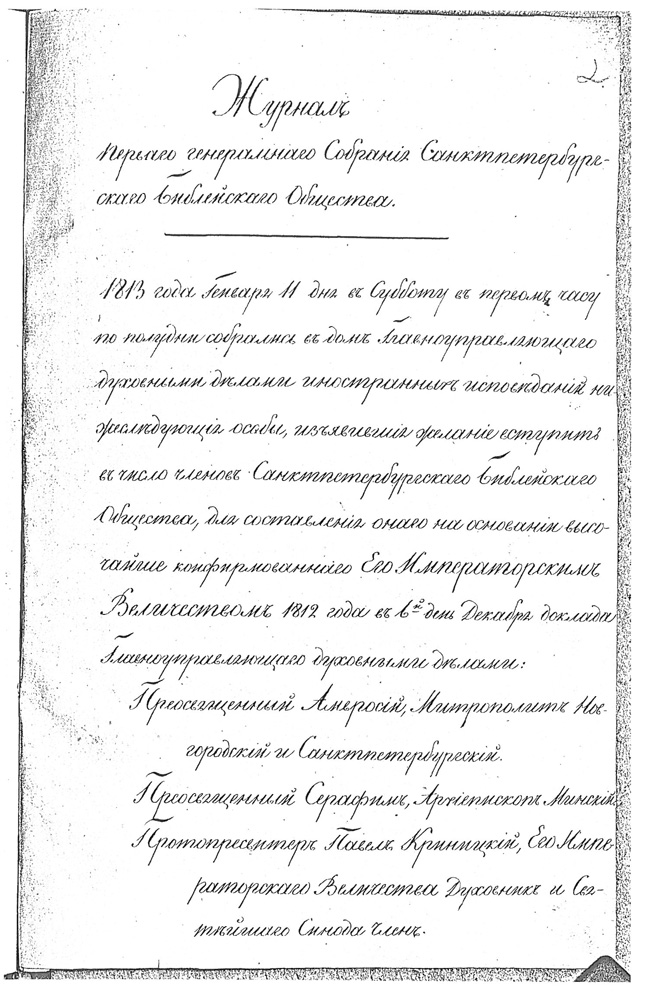 2
Журналъ
перваго генеральнаго Собранія Санктпетербург-
скаго Библейскаго Общества.
1813 года Генваря 11 дня въ Субботу въ первомъ часу
по полудни собрались въ домъ Главноуправляющаго
духовными дѣлами иностранныхъ исповѣданій ни-
жеслѣдующія особы, изъявившія желаніе вступить
въ число членовъ Санктпетербургскаго Библейскаго
Общества, для составленія онаго на основаніи высо-
чайше конфирмованнаго Его Императорскимъ
Величествомъ 1812 года въ 6й день Декабря доклада
Главноуправляющаго духовными дѣлами:
Преосвященный Амвросій, Митрополитъ Нов-
городскій и Санктпетербургскій.
Преосвященный Серафимъ, Архіепископъ Минскій
Протопресвитеръ Павелъ Криницкій, Его Импе-
раторскаго Величества Духовникъ и Свя-
тѣйшаго Синода Членъ.